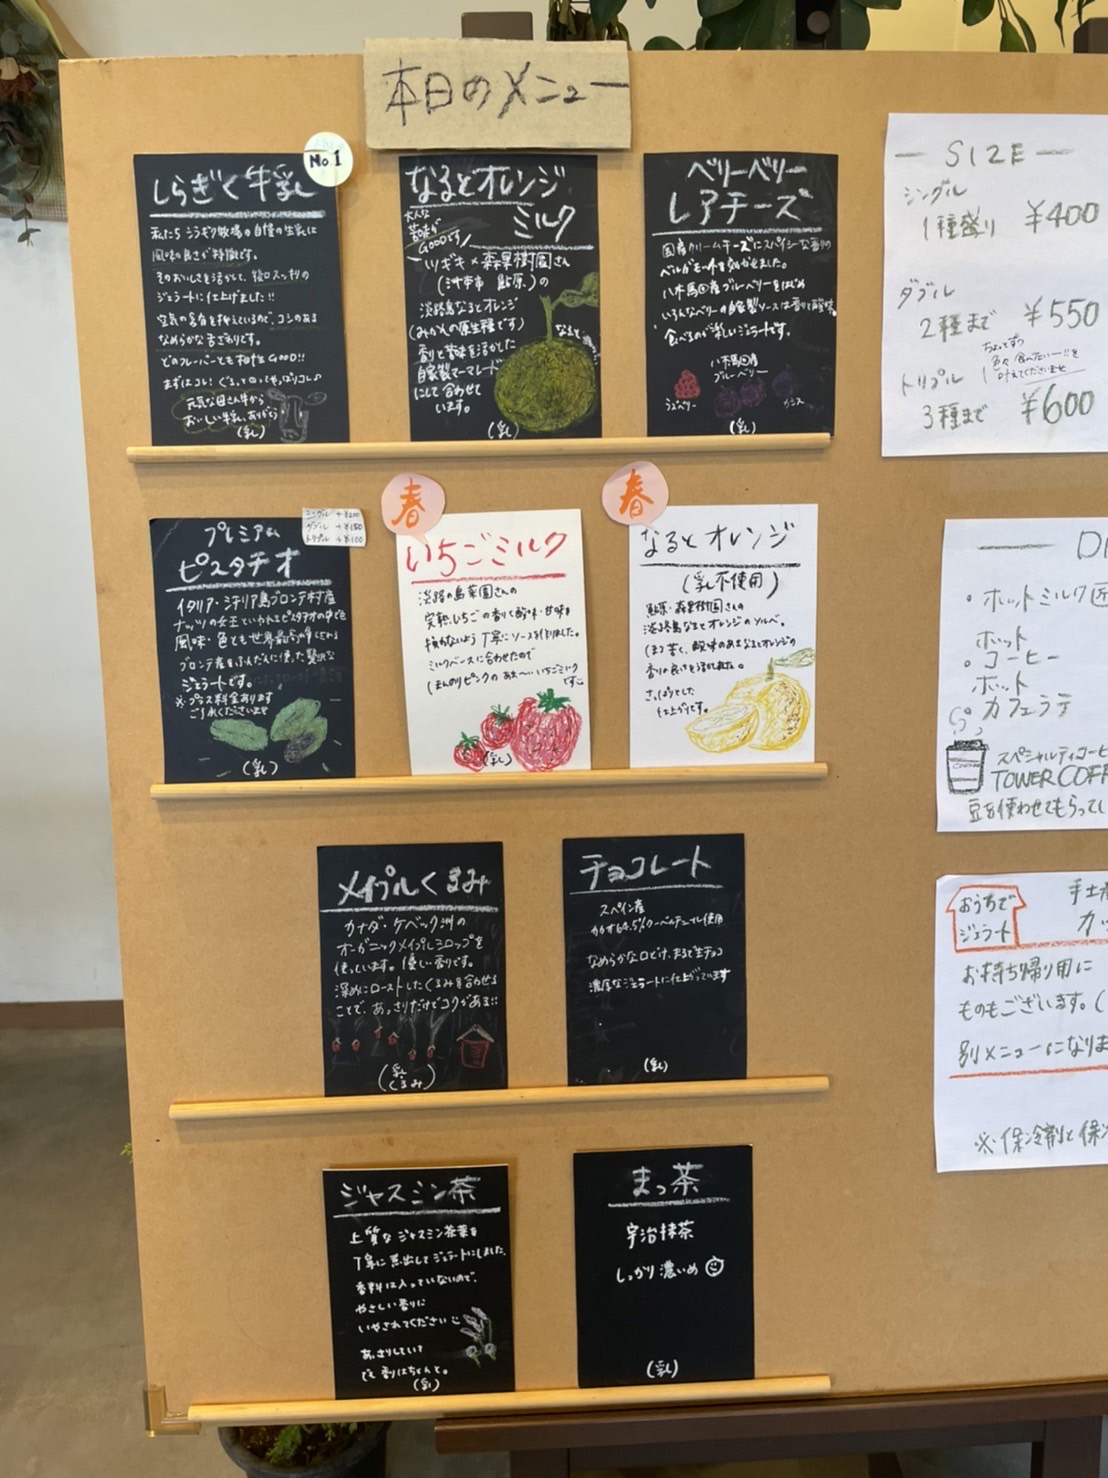 本日のメニュー
No.1
しらぎく牛乳
私たちシラギク牧場の自慢の生乳は
風味の良さが特徴です。
そのおいしさを活かして、後口スッキリの
ジェラートに仕上げました!!
空気の含有を抑えているので、コシのある
なめらかな舌ざわりです。
どのフレーバーとも相性GOOD!!
まずはコレ! ぐるっとロってやっぱりコレ♪
元気な母さん牛から
おいしい牛乳、ありがとう
(乳)
なるとオレンジ
ミルク
大人な
苦味が
GOODです
森果樹園さん
(洲本市 鮎原)の
淡路島なるとオレンジ
(みかんの原生種です)
香りと苦味を活かした
自家製マーマレード
にして合わせて
います。
なると
(乳)
ベリーベリー
レアチーズ
国産クリームチーズにスパイシーな香りの
八木馬回産ブルーベリーをはじめ
いろんなベリーの自家製ソースは香りと酸味。
食べるのが楽しいジェラートです。
八木馬回産
ブルーベリー
ラズベリー
カシス
(乳)
プレミアム
ピスタチオ
シングル +¥200
ダブル +¥150
トリプル +¥100
イタリア・シチリア島ブロンテ村産
ナッツの女王といわれるピスタチオの中で色
風味・色とも世界最高峰とされる
ブロンテ産をふんだんに使った贅沢な
ジェラートです。
※プラス料金あります
ご了承くださいませ
(乳)
春
いちごミルク
淡路の島菜園さんの
完熟いちごの香りと酸味・甘味を
損なわないよう丁寧にソースを作りました。
ミルクベースに合わせたので
ほんのりピンクのあま〜いいちごミルク
です
(乳)
春
なるとオレンジ
(乳不使用)
鮎原・森果樹園さんの
淡路島なるとオレンジのソルベ。
ほろ苦く、酸味のあるなるとオレンジの
香りの良さを活かした。
さっぱりとした
仕上がりです。
メイプルくるみ
カナダ・ケベック州の
オーガニックメイプルシロップを
使っています。優しい香りです。
深めにローストしたくるみを合わせる
ことで、あっさりだけでコクがある!!
(乳
くるみ)
チョコレート
スペイン産
カカオ64.5%クーベルチュール使用
なめらかな口どけ、まるで生チョコ
濃厚なジェラートに仕上がっています
(乳)
ジャスミン茶
上質なジャスミン茶葉を
丁寧に煮出してジェラートにしました。
香料は入っていないので、
やさしい香りに
いやされてください
あっさりしていて
でも香りはちゃんと。
(乳)
まっ茶
宇治抹茶
しっかり濃いめ
(乳)
— SIZE —
シングル
1種盛り ¥400
ダブル
2種まで ¥550
ちょっとずつ
色々食べたい…!!を
叶えてくださいませ
トリプル
3種まで ¥600
・ホットミルク
ホット
・コーヒー
ホット
カフェラテ
スペシャルティコーヒ
TOWER COFF
豆を使わせてもらってい
おうちで
ジェラート
手土産
カッ
お持ち帰り用に
ものもございます。(
別メニューになりま
※保冷剤と保冷